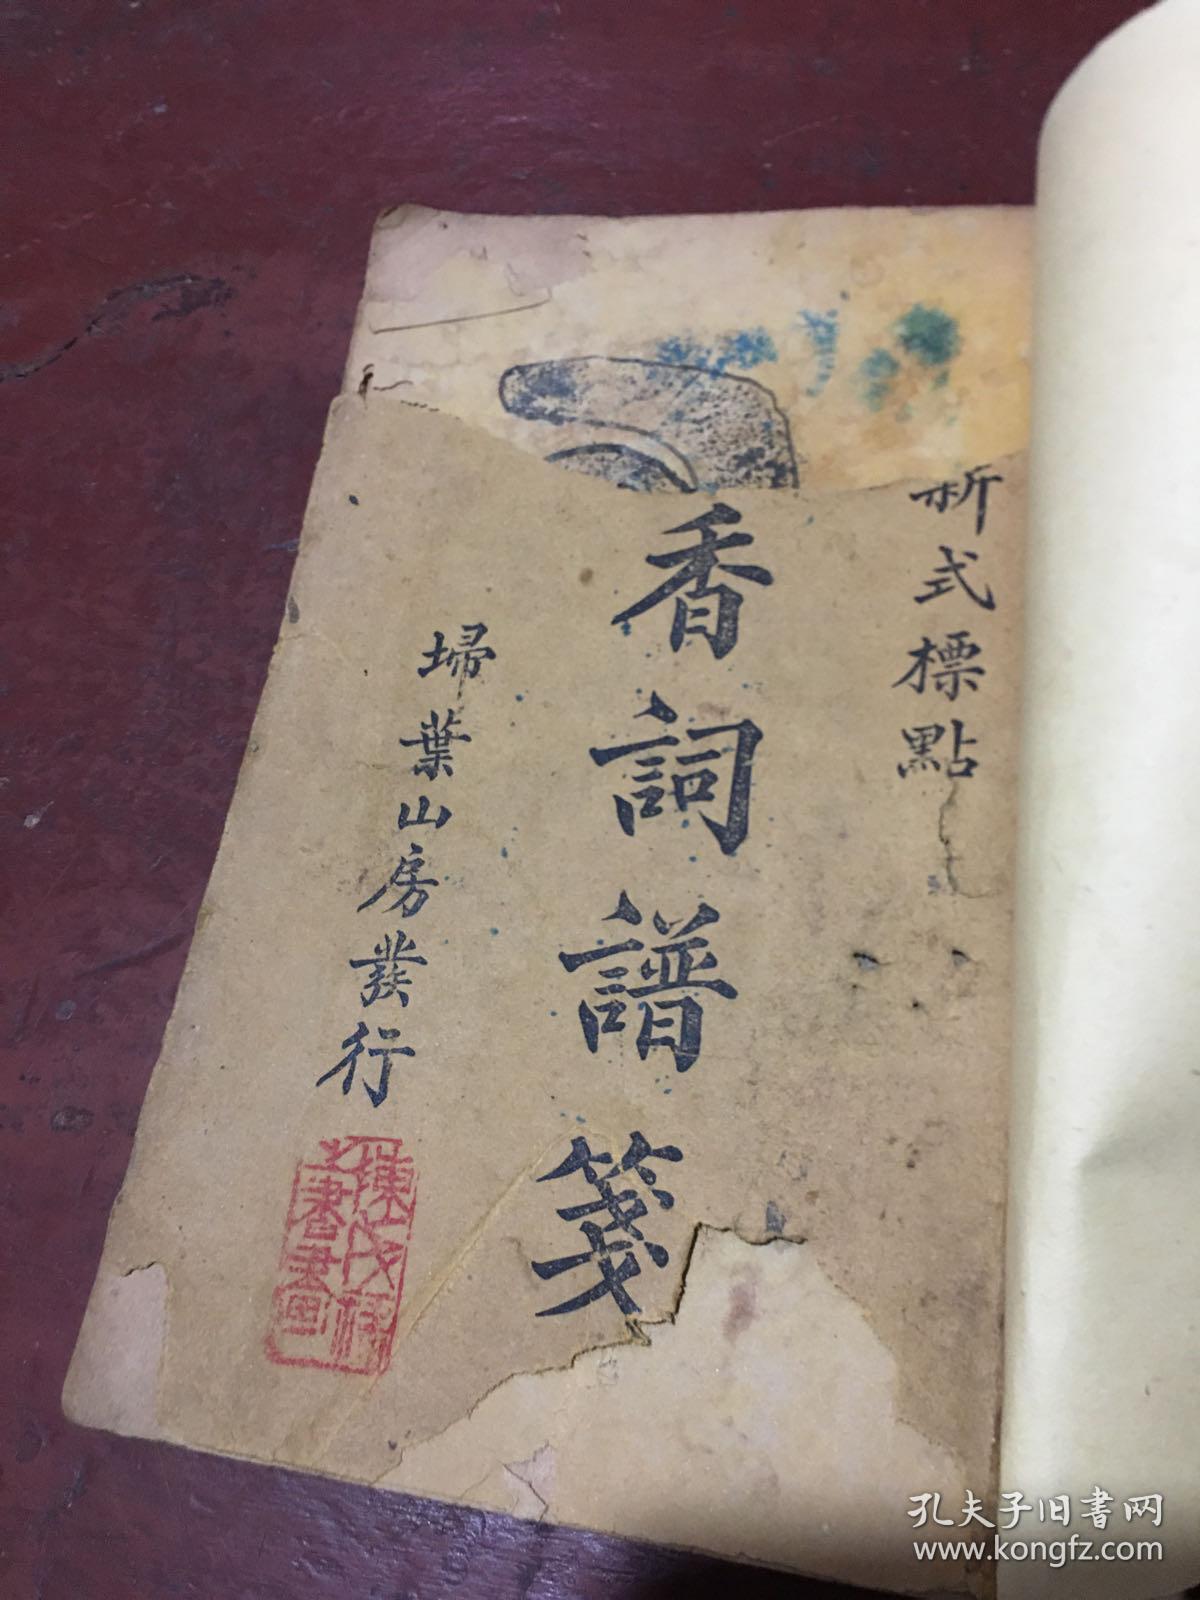 新式標點
香詞譜箋
埽葉山房發行
孔夫子旧书网
www.kongfz.com